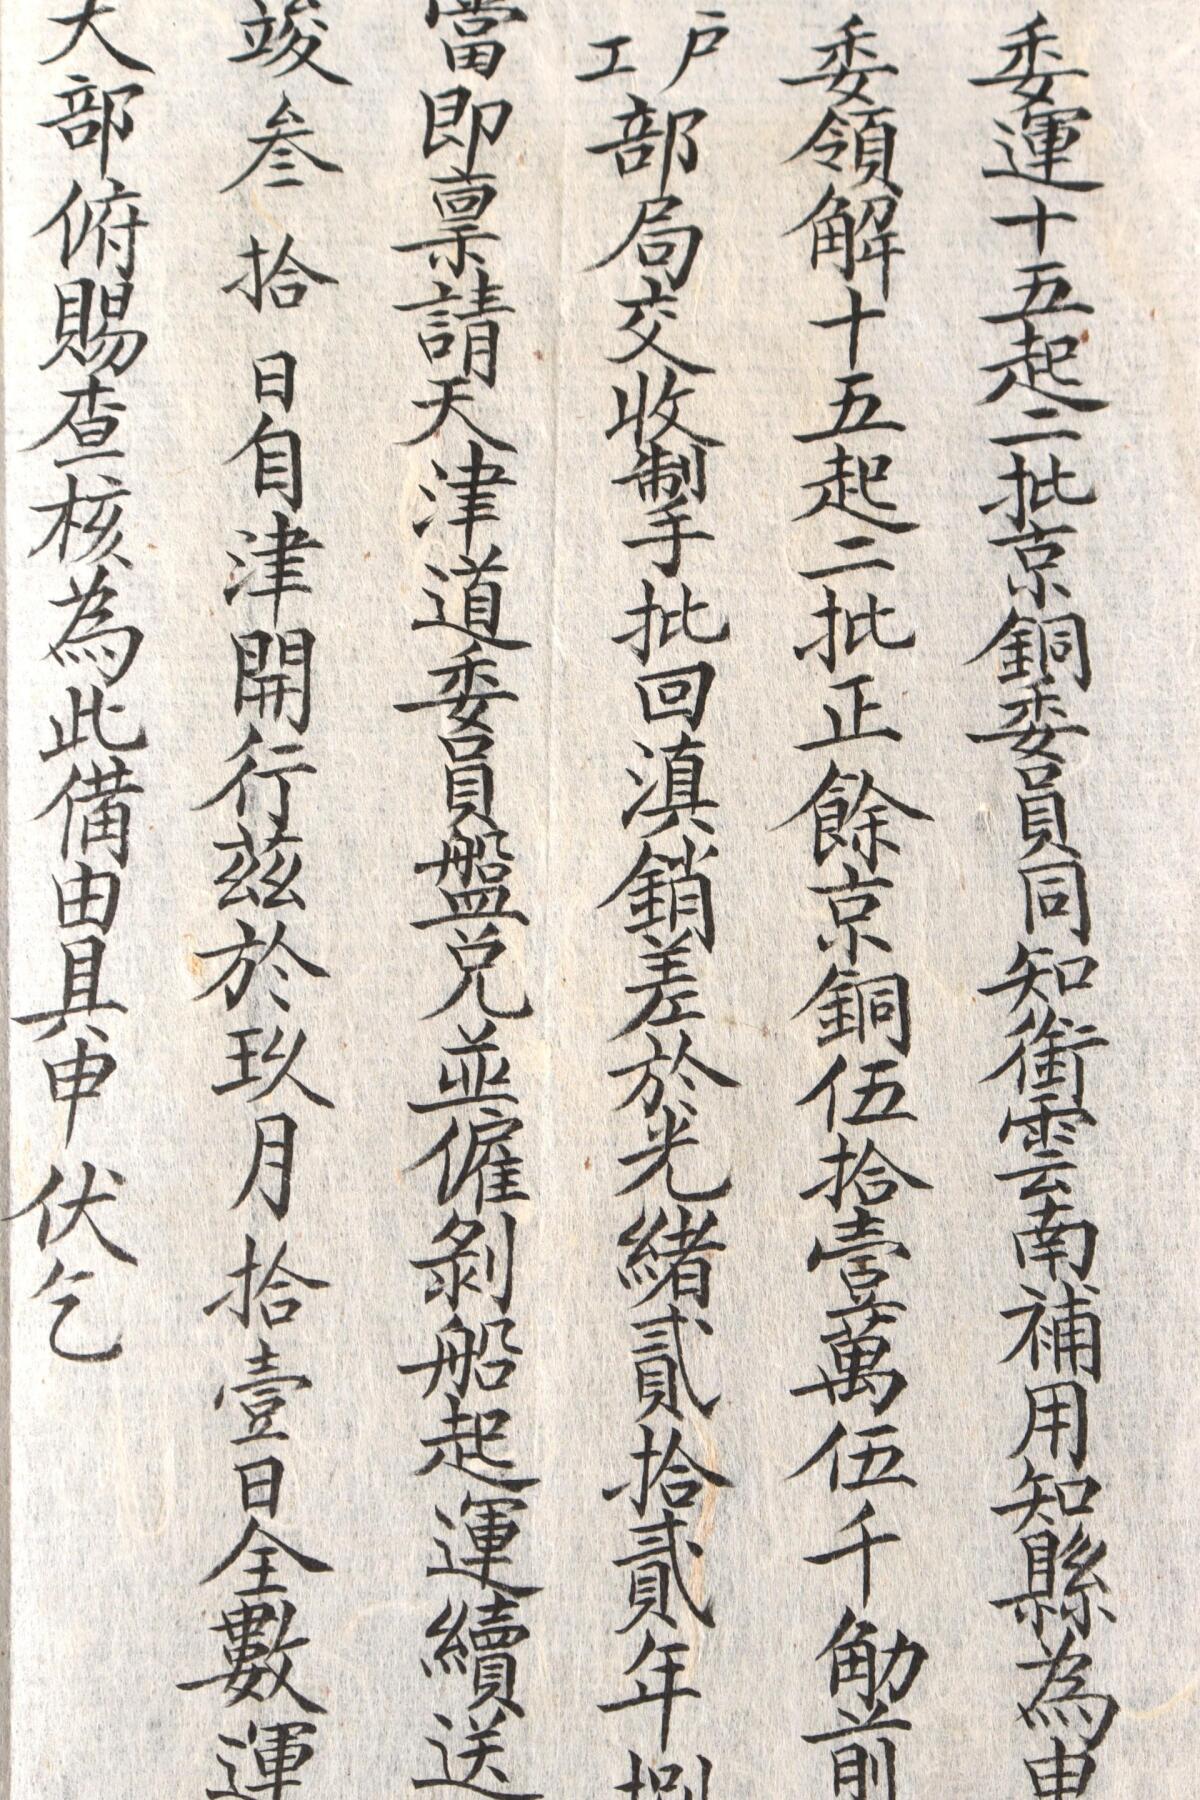 委運十五起二批京銅委員同知銜雲南補用知縣為申
委領解十五起二批正餘京銅伍拾壹萬伍千觔前
戶工部局交收掣批回滇銷差於光緒貳拾貳年捌
當即禀請天津道委員盤兌並僱剝船起運續送
竣叁拾日自津開行茲於玖月拾壹日全數運
大部俯賜查核為此備由具申伏乞